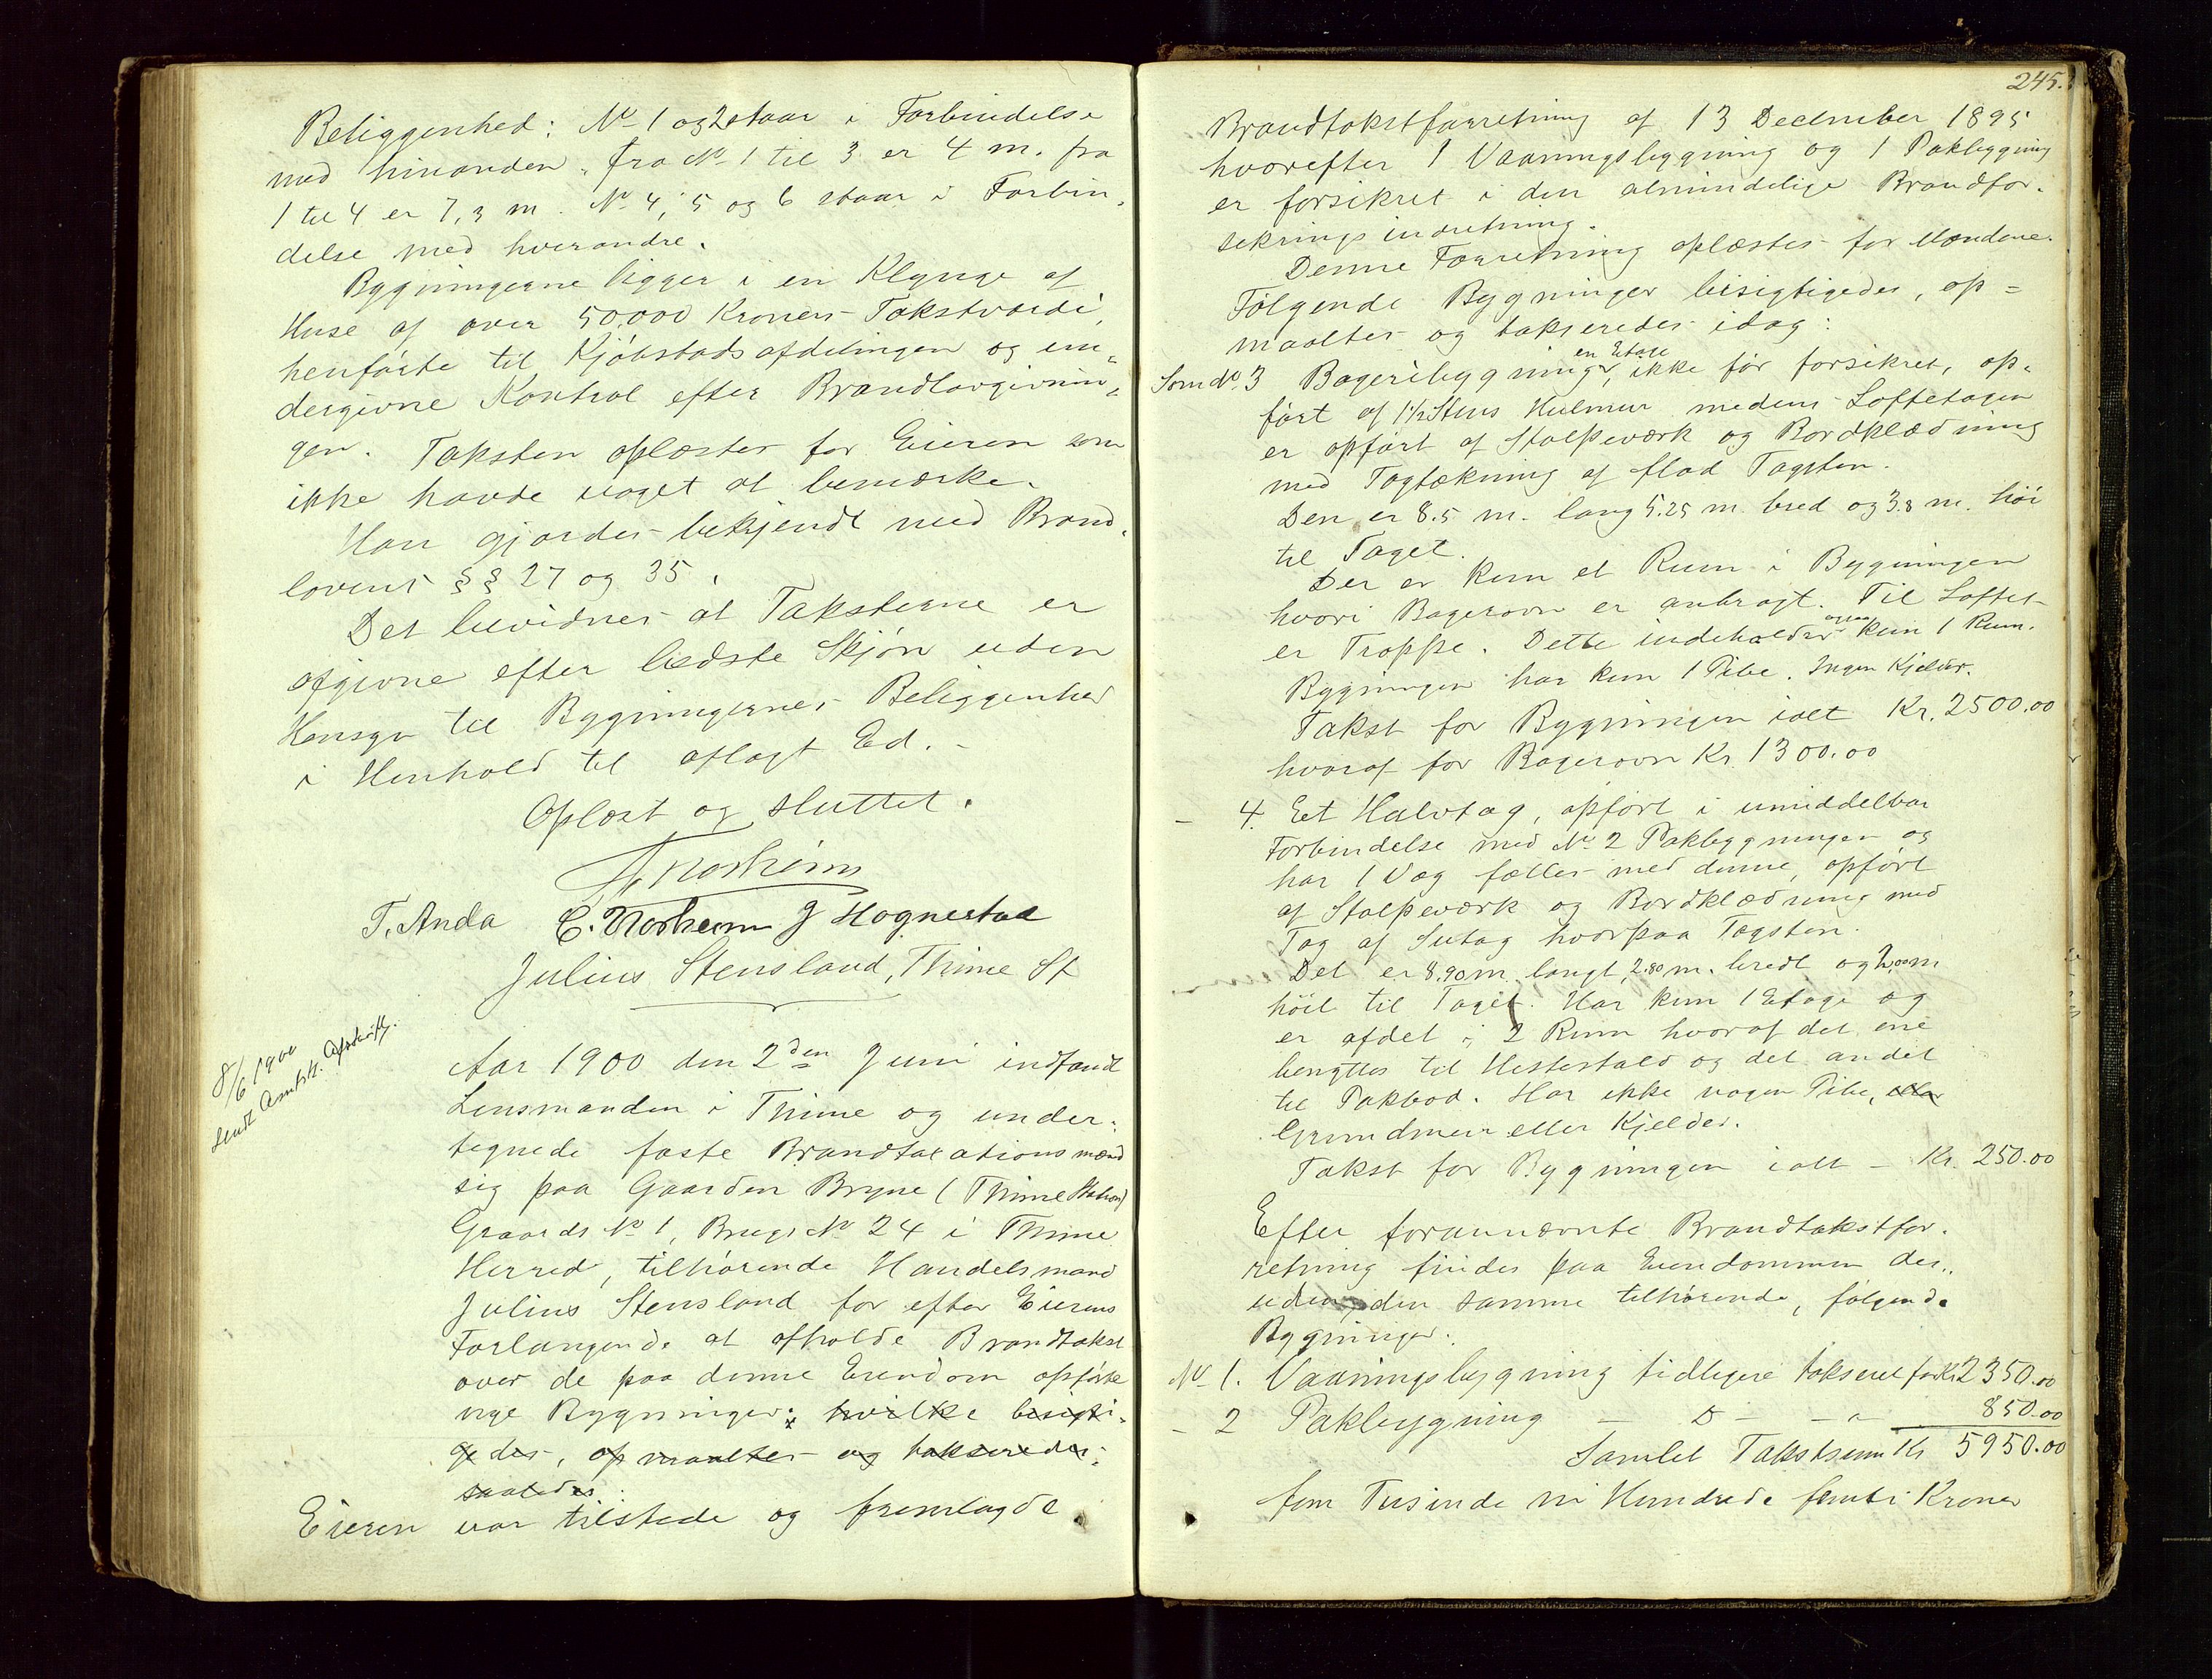 Beliggenhed: No 1 og 2 staar i Forbindelse
med hinanden. fra No 1 til 3 er 4 m. fra
1 til 4 er 7,3 m. No 4, 5 og 6 staar i Forbin,
delse med hverandre.
Bygningerne ligger i en Klynge af
Huse af over 50,000 Kroners Takstværdi,
henførte til Kjøbstadsafdelingen og un„
dergivne Kontrol efter Brandlovgivnin„
gen. Taksten oplæstes for Eieren som
ikke havde noget at bemærke.
Han gjordes bekjendt med Brand,
lovens §§ 27 og 35.
Det bevidnes at Taksterne er
afgivne efter bedste Skjøn uden
Hensyn til Bygningernes Beliggenhed
i Henhold til aflagt Ed.
Oplæst og sluttet.
Norheim
T. Anda C. Norheim J Hognestad
Julius Stensland, Thime St
8/6 1900
sendt Amtsk. Afskrift.
Aar 1900 den 2den Juni indfandt
Lensmanden i Thime og under:
tegnede faste Brandtaxationsmænd
sig paa Gaarden Bryne (Thime Station)
Gaards No 1, Brugs No 24 i Thime
Herred, tilhørende Handelsmand
Julius Stensland for efter Eierens
Forlangende at afholde Brandtakst
over de paa denne Eiendom opførte
nye Bygninger: hvilke besigti„
gedes, opmaaltes og takseredes
saaledes:
Eieren var tilstede og fremlagde
245.
Brandtakstforretning af 13 December 1895
hvorefter 1 Vaaningsbygning og 1 Pakbygning
er forsikret i den almindelige Brandfor.
sikringsindretning.
Denne Forretning oplæstes for Mændene.
Følgende Bygninger besigtigedes, op=
maaltes og takseredes idag:
en Etage
Som No. 3 Bageribygning, ikke før forsikret, op„
ført af 1½ Stens Hulmur medens Loftetagen
er opført af Stolpeværk og Bordklædning
med Tagtækning af flad Tagsten.
Den er 8.5 m. lang 5.25 m bred og 3.8 m. høi
til Taget.
Der er kun et Rum i Bygningen
hvori Bagerovn er anbragt. Til Loftet
er Trappe. Dette indeholder ogsaa kun 1 Rum.
Bygningen har kun 1 Pibe. Ingen Kjelder.
Takst for Bygningen ialt Kr. 2500.00
hvoraf for Bagerovn Kr 1300.00
- 4. Et Halvtag, opført i umiddelbar
Forbindelse med No 2 Pakbygningen og
har 1 Væg fælles med denne, opført
af Stolpeværk og Bordklædning med
Tag af Sutag hvorpaa Tagsten.
Det er 8.90 m. langt, 2.80 m. bredt og 2,00 m
høit til Taget. Har kun 1 Etage og
er afdelt i 2 Rum hvoraf det ene
benyttes til Hestestald og det andet
til Pakbod. Har ikke nogen Pibe, eller
Grundmur eller Kjelder.
Takst for Bygningen ialt - Kr. 250.00
Efter forannævnte Brandtakstfor.
retning findes paa Eiendommen des„
uden, den samme tilhørende, følgende
Bygninger:
No 1. Vaaningsbygning tidligere takseret for Kr 2350.00
- 2 Pakbygning - D - - " 850.00
Samlet Takstsum Kr 5950.00
fem Tusinde ni Hundrede femti Kroner